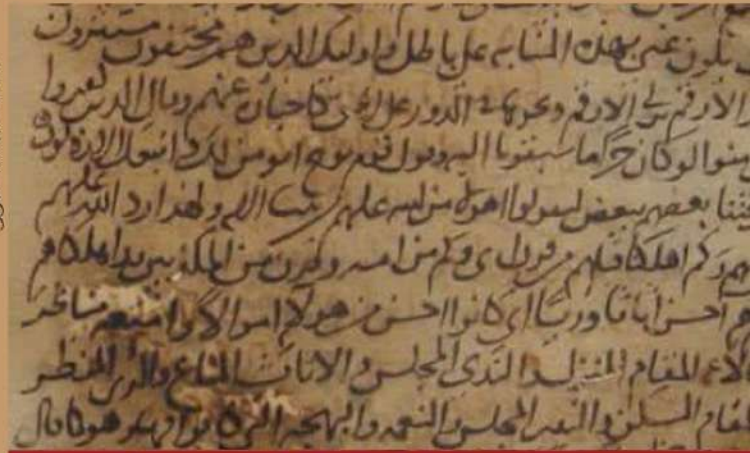 نكون نحن بهذه المثابة على باطل واوليك الذين هم مختفون مستترون
الارقم بن ابي الارقم ونحوها من الدور على الحق كما اخبر عنهم وقال الذين كفروا
امنوا لو كان خيرا ما سبقونا اليه وقول قوم نوح انومن لك واتبعك الارذلون
فتنا بعضهم ببعض ليقولوا اهولا من الله عليهم ولهذا رد الله عليهم
وكم اهلكنا قبلهم من قرن اي وكم من امه وقرن من المكذبين قد اهلكناهم
احسن اثاثا وريا اي كانوا احسن من هولا اموالا وامتعه
المقام المنزل والندي المجلس والاثاث المتاع والري المنظر
المقام المسكن والندي المجلس والنعمه والبهجه التي كانوا فيها وهو كما قال